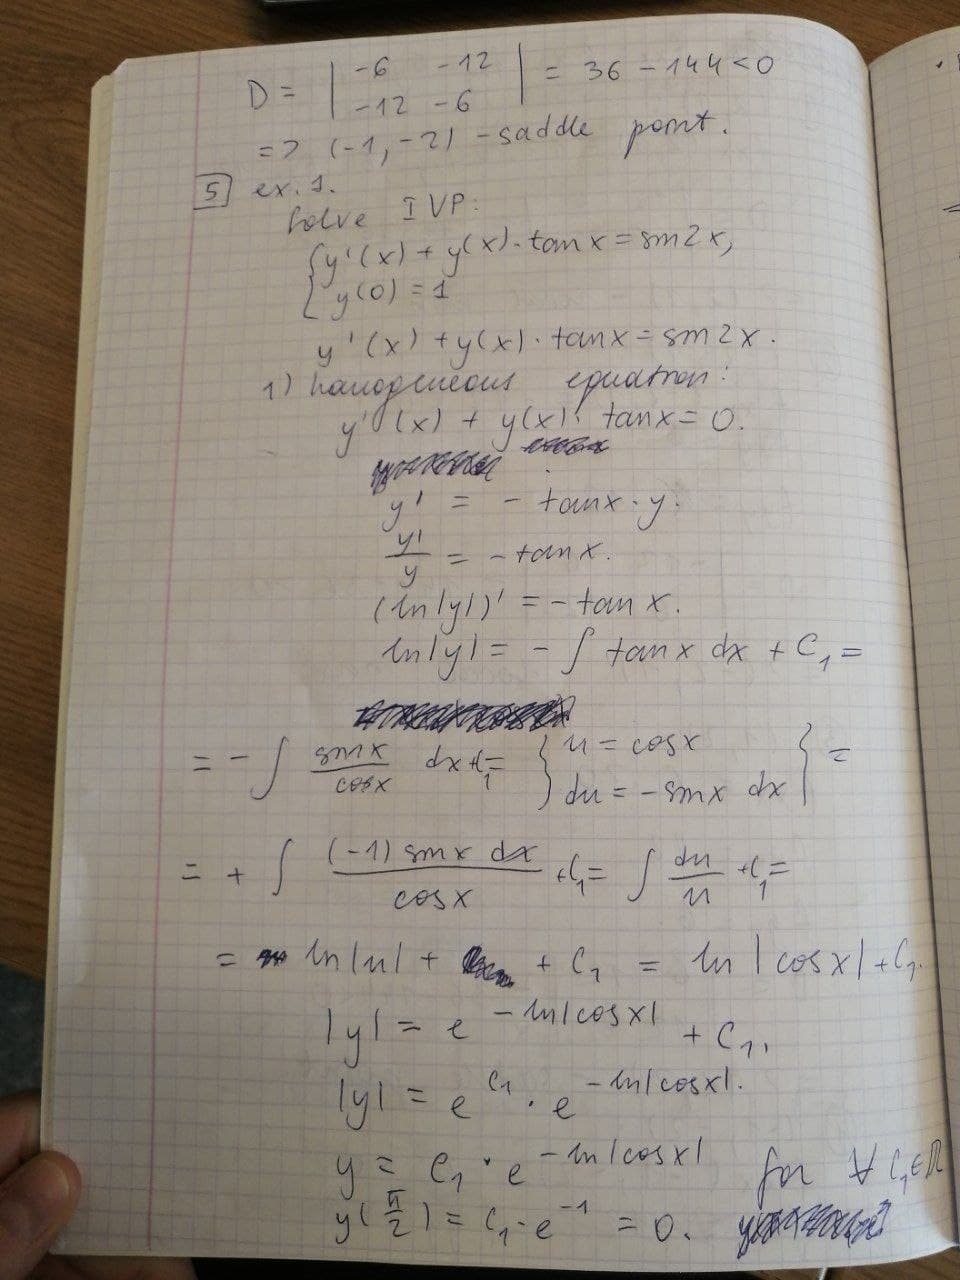 D = | -6 -12 | = 36 - 144 < 0
| -12 -6 |
=> (-1, -2) - saddle point.
5 ex. 1.
Solve IVP:
{ y'(x) + y(x) · tan x = sin 2x,
{ y(0) = 1
y'(x) + y(x) · tan x = sin 2x.
1) homogeneous equation:
y'(x) + y(x) · tan x = 0.
y' = - tan x · y.
y'/y = - tan x.
(ln|y|)' = - tan x.
ln|y| = - ∫ tan x dx + C₁ =
= - ∫ sin x / cos x dx + C₁ = { u = cos x
du = - sin x dx } =
= + ∫ (-1) sin x dx / cos x + C₁ = ∫ du/u + C₁ =
= ln|u| + + C₁ = ln|cos x| + C₁.
|y| = e^(-ln|cos x|) + C₁,
|y| = e^(C₁) · e^(-ln|cos x|).
y = C₁ · e^(-ln|cos x|) for ∀ C₁ ∈ ℝ
y(π/2) = C₁ · e^(-1) = 0.